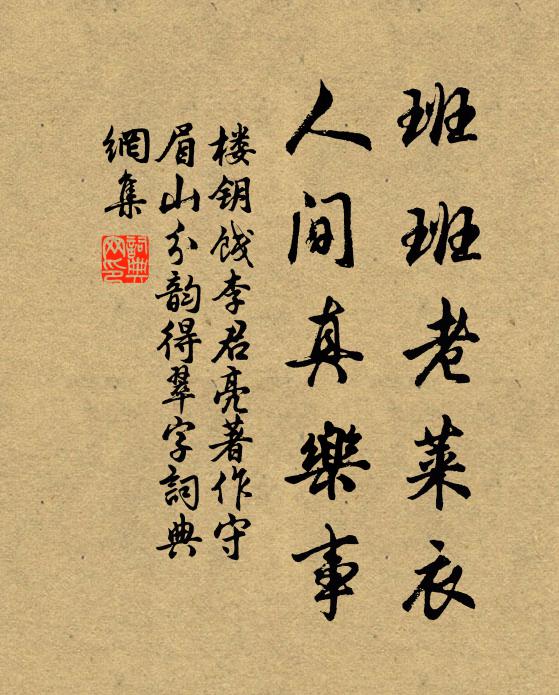 班班老莱衣
人间真樂事
楼钥饯李君亮著作守
眉山分韵得翠字詞典
網集
詞典
网印